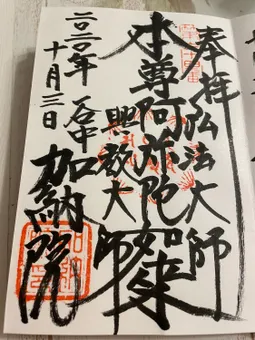 奉拝
弘法大師
本尊阿弥陀如来
興教大師
二〇二〇年
十月三日
谷中
加納院